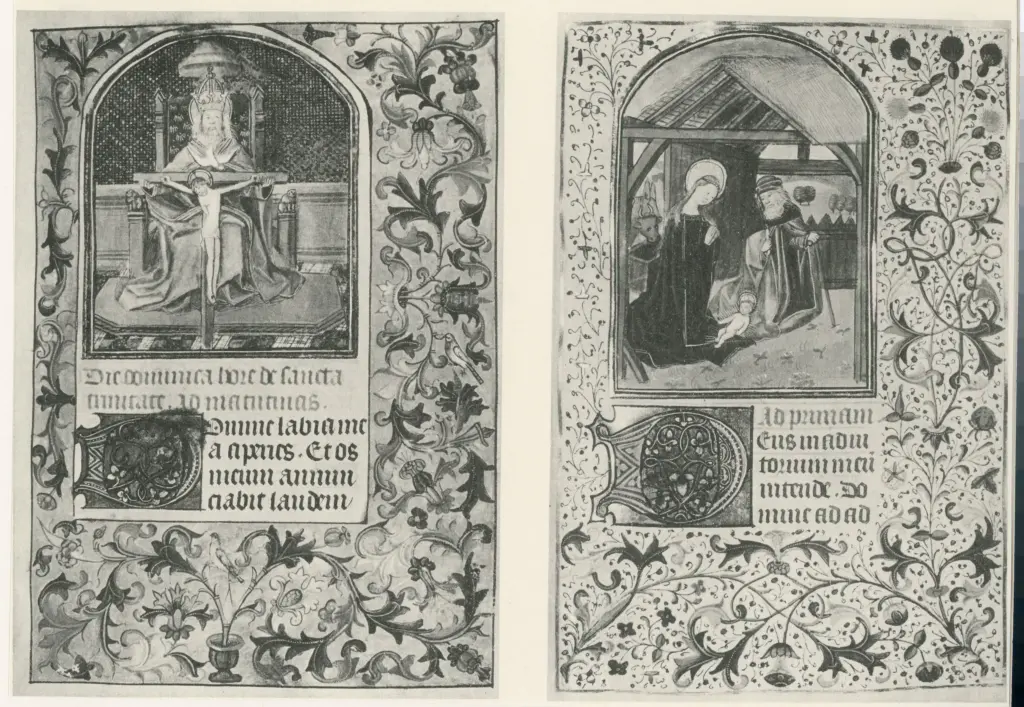 Die dominica hore de sancta
trinitate. ad matutinas.
Domine labia me
a aperies. Et os
meum annun
ciabit laudem
Ad primam
Deus in adiu
torium meu
intende. Do
mine ad ad